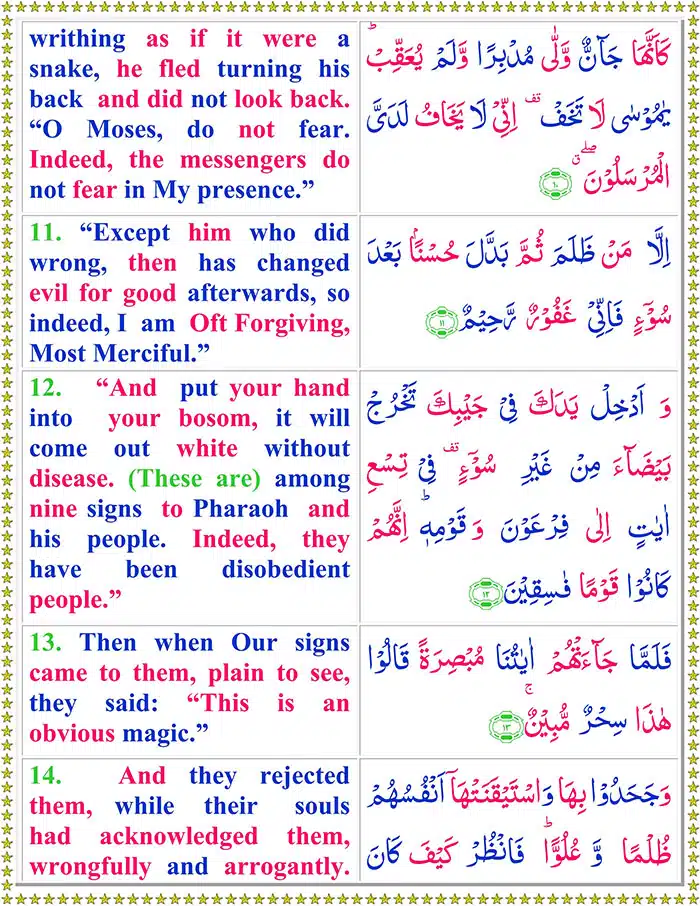 writhing as if it were a
snake, he fled turning his
back and did not look back.
“O Moses, do not fear.
Indeed, the messengers do
not fear in My presence.”
كَاَنَّهَا جَآنٌّ وَّلّٰى مُدْبِرًا وَّلَمْ يُعَقِّبْ ؕ
يٰمُوْسٰى لَا تَخَفْ ۟ اِنِّىْ لَا يَخَافُ لَدَىَّ
الْمُرْسَلُوْنَ ۖۗ ۱۰
11. “Except him who did
wrong, then has changed
evil for good afterwards, so
indeed, I am Oft Forgiving,
Most Merciful.”
اِلَّا مَنْ ظَلَمَ ثُمَّ بَدَّلَ حُسْنًۢا بَعْدَ
سُوْٓءٍ فَاِنِّىْ غَفُوْرٌ رَّحِيْمٌ ۱۱
12. “And put your hand
into your bosom, it will
come out white without
disease. (These are) among
nine signs to Pharaoh and
his people. Indeed, they
have been disobedient
people.”
وَ اَدْخِلْ يَدَكَ فِىْ جَيْبِكَ تَخْرُجْ
بَيْضَآءَ مِنْ غَيْرِ سُوْٓءٍ ۟ فِىْ تِسْعِ
اٰيٰتٍ اِلٰى فِرْعَوْنَ وَ قَوْمِهٖ ؕ اِنَّهُمْ
كَانُوْا قَوْمًا فٰسِقِيْنَ ۱۲
13. Then when Our signs
came to them, plain to see,
they said: “This is an
obvious magic.”
فَلَمَّا جَآءَتْهُمْ اٰيٰتُنَا مُبْصِرَةً قَالُوْا
هٰذَا سِحْرٌ مُّبِيْنٌ ۚ ۱۳
14. And they rejected
them, while their souls
had acknowledged them,
wrongfully and arrogantly.
وَجَحَدُوْا بِهَا وَاسْتَيْقَنَتْهَاۤ اَنْفُسُهُمْ
ظُلْمًا وَّ عُلُوًّا ؕ فَانْظُرْ كَيْفَ كَانَ